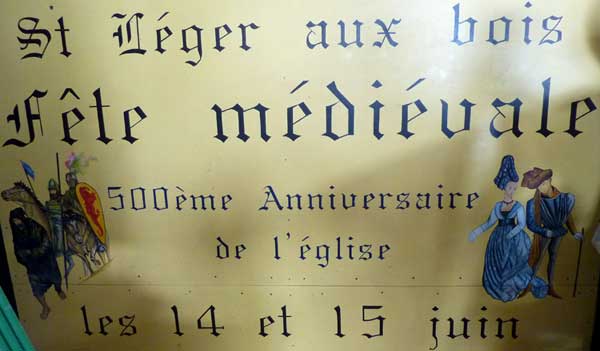 St Léger aux bois
Fête médiévale
500ème Anniversaire
de l'église
les 14 et 15 juin